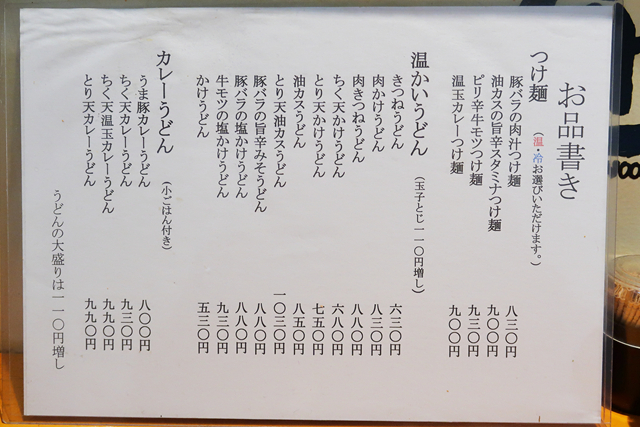 お品書き
つけ麺 (温・冷お選びいただけます。)
豚バラの肉汁つけ麺 八三〇円
油カスの旨辛スタミナつけ麺 九〇〇円
ピリ辛牛モツつけ麺 九三〇円
温玉カレーつけ麺 九〇〇円
温かいうどん (玉子とじ一一〇円増し)
きつねうどん 六三〇円
肉かけうどん 八三〇円
肉きつねうどん 八八〇円
ちく天かけうどん 六八〇円
とり天かけうどん 七五〇円
油カスうどん 八五〇円
とり天油カスうどん 一〇三〇円
豚バラの旨辛みそうどん 八八〇円
豚バラの塩かけうどん 八八〇円
牛モツの塩かけうどん 九三〇円
かけうどん 五三〇円
カレーうどん (小ごはん付き)
うま豚カレーうどん 八〇〇円
ちく天カレーうどん 九三〇円
ちく天温玉カレーうどん 九九〇円
とり天カレーうどん 九九〇円
うどんの大盛りは一一〇円増し